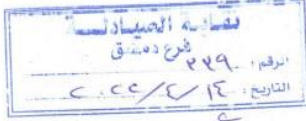 نقابة الصيادلة
فرع دمشق
الرقم: ٣٣٩
التاريخ: ١٤/٤/٢٠٢٢